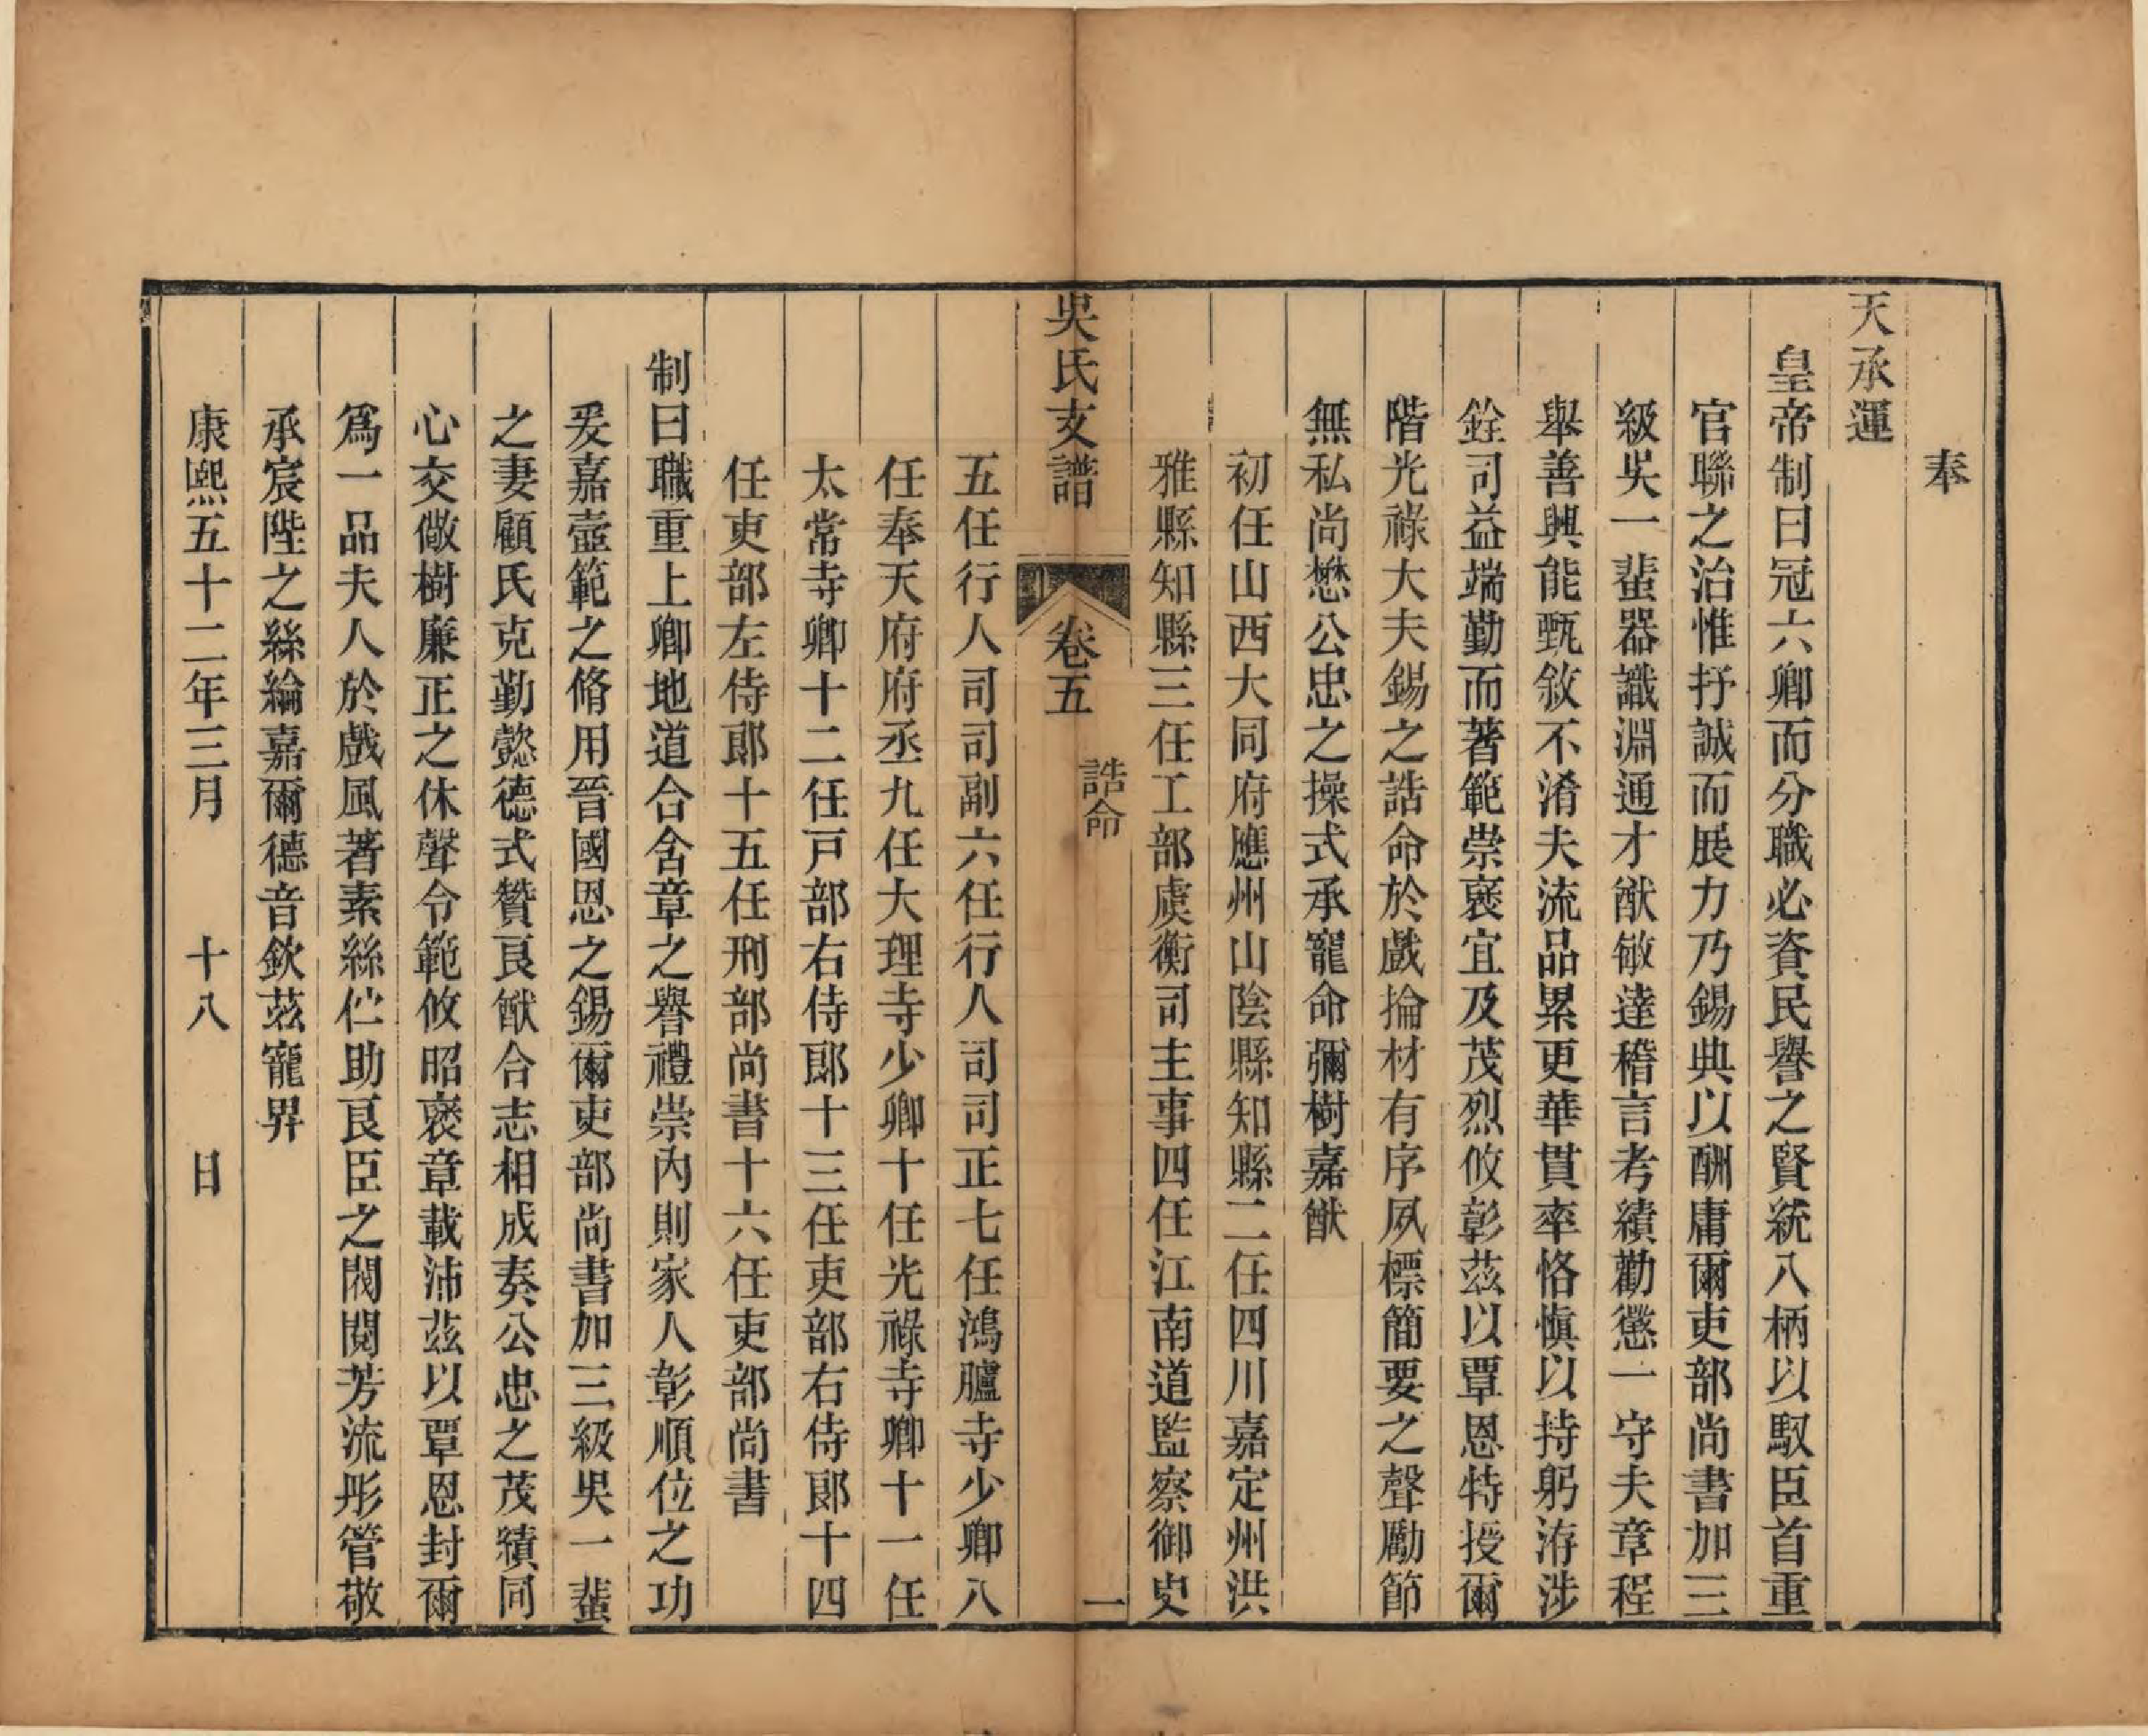 奉
天承運
皇帝制曰冠六卿而分職必資民譽之賢統八柄以馭臣首重
官聯之治惟抒誠而展力乃錫典以酬庸爾吏部尚書加三
級吳一蜚器識淵通才猷敏達稽言考績勸懲一守夫章程
舉善興能甄敘不淆夫流品累更華貫率恪慎以持躬洊涉
銓司益端勤而著範崇褒宜及茂烈攸彰茲以覃恩特授爾
階光祿大夫錫之誥命於戲掄材有序夙標簡要之聲勵節
無私尚懋公忠之操式承寵命彌樹嘉猷
初任山西大同府應州山陰縣知縣二任四川嘉定州洪
雅縣知縣三任工部虞衡司主事四任江南道監察御史
吳氏支譜 卷五 誥命 一
五任行人司司副六任行人司司正七任鴻臚寺少卿八
任奉天府府丞九任大理寺少卿十任光祿寺卿十一任
太常寺卿十二任戸部右侍郎十三任吏部右侍郎十四
任吏部左侍郎十五任刑部尚書十六任吏部尚書
制曰職重上卿地道合含章之譽禮崇內則家人彰順位之功
爰嘉壼範之脩用晉國恩之錫爾吏部尚書加三級吳一蜚
之妻顧氏克勤懿德式贊良猷合志相成奏公忠之茂績同
心交儆樹廉正之休聲令範攸昭褒章載沛茲以覃恩封爾
爲一品夫人於戲風著素絲伫助良臣之閥閱芳流彤管敬
承宸陛之絲綸嘉爾德音欽茲寵畀
康熙五十二年三月 十八 日